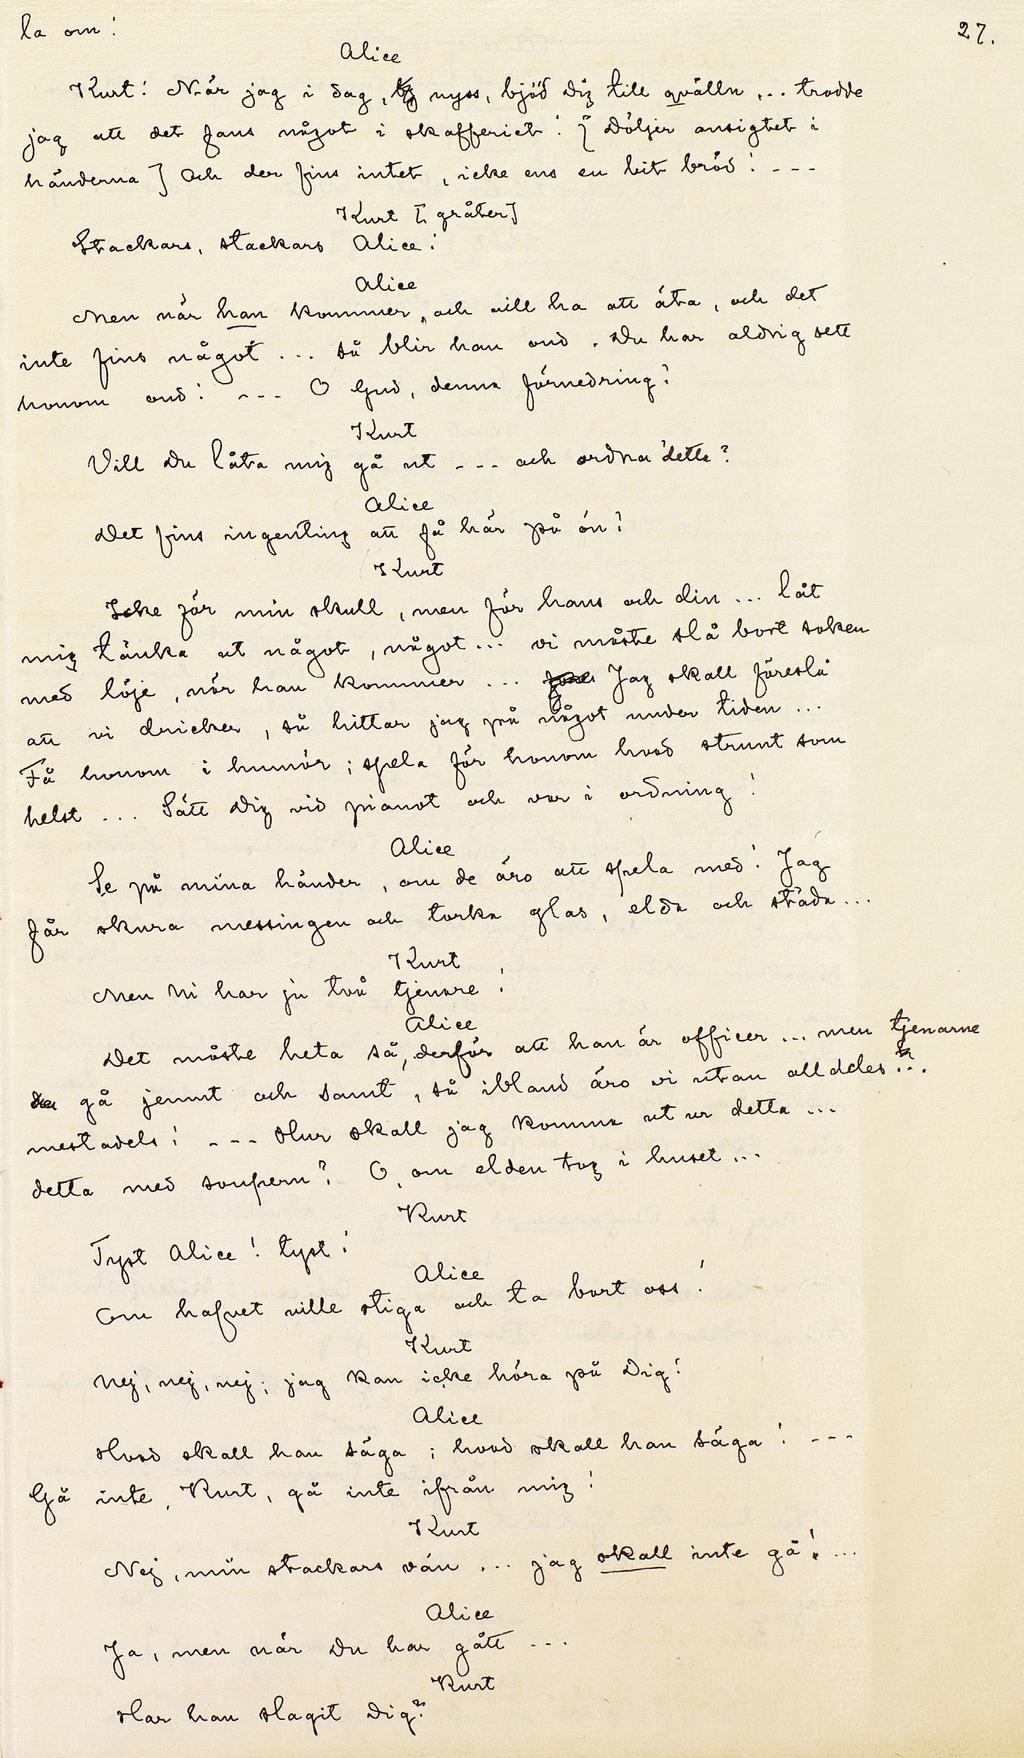 la om!
27.
Alice
Kurt! När jag i dag, nyss, bjöd Dig till qvälln ... trodde
jag att det fans något i skafferiet! [Döljer ansigtet i
händerna] Och der fins intet, icke ens en bit bröd! ---
Kurt [gråter]
Stackars, stackars Alice!
Alice
Men när han kommer, och vill ha att äta, och det
inte fins något ... så blir han ond. Du har aldrig sett
honom ond! --- O Gud, denna förnedring!
Kurt
Vill Du låta mig gå ut --- och ordna detta?
Alice
Det fins ingenting att få här på ön!
Kurt
Icke för min skull, men för hans och din ... låt
mig tänka ut något, något ... vi måste slå bort saken
med löje, när han kommer ... Jag skall föreslå
att vi dricker, så hittar jag på något under tiden ...
Få honom i humör; spela för honom hvad strunt som
helst ... Sätt Dig vid pianot och var i ordning!
Alice
Se på mina händer, om de äro att spela med! Jag
får skura messingen och torka glas, elda och städa ...
Kurt
Men Ni har ju två tjenare!
Alice
Det måste heta så, derför att han är officer ... men tjenarne
gå jemnt och samt, så ibland äro vi utan alldeles ...
mestadels! --- Hur skall jag komma ut ur detta ...
detta med soupern? O, om elden tog i huset ...
Kurt
Tyst Alice! tyst!
Alice
Om hafvet ville stiga och ta bort oss!
Kurt
Nej, nej, nej; jag kan icke höra på Dig!
Alice
Hvad skall han säga; hvad skall han säga! ---
Gå inte, Kurt, gå inte ifrån mig!
Kurt
Nej, min stackars vän ... jag skall inte gå! ...
Alice
Ja, men när Du har gått ---
Kurt
Har han slagit Dig?